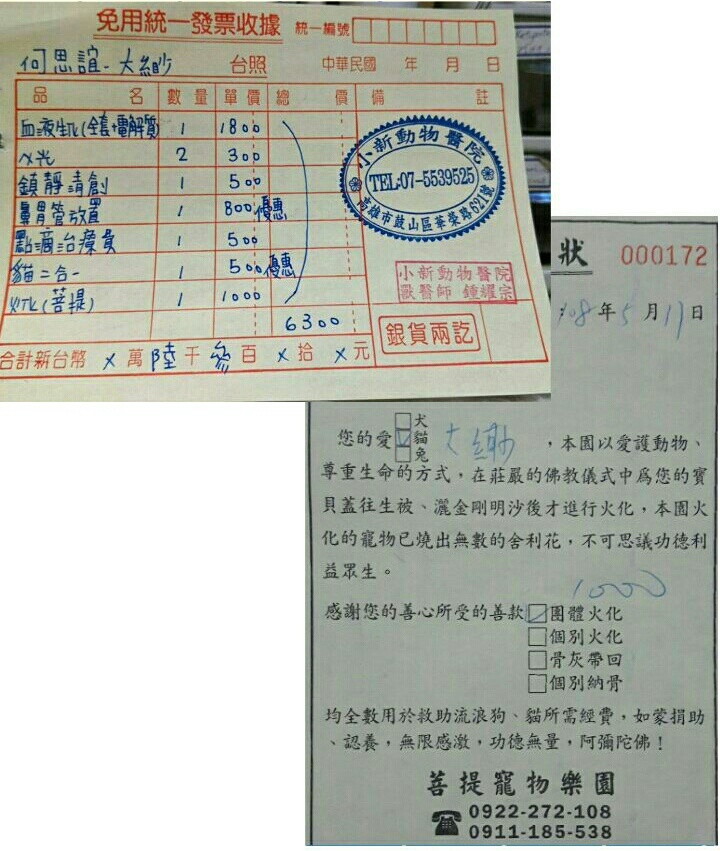 免用統一發票收據 統一編號
何思誼-大緲 台照 中華民國 年 月 日
品 名 數量 單價 總 價 備 註
血液生化(全套+電解質) 1 1800
X光 2 300
鎮靜清創 1 500
鼻胃管放置 1 800 優惠
點滴治療費 1 500
貓二合一 1 500 優惠
火化(菩提) 1 1000
6300
合計新台幣 X 萬 陸 千 參 百 X 拾 X 元
銀貨兩訖
小新動物醫院
TEL:07-5539525
高雄市鼓山區華榮路621號
小新動物醫院
獸醫師 鍾耀宗
狀 000172
108年5月17日
犬
您的愛 貓 大緲 ，本園以愛護動物、
兔
尊重生命的方式，在莊嚴的佛教儀式中為您的寶
貝蓋往生被、灑金剛明沙後才進行火化，本園火
化的寵物已燒出無數的舍利花，不可思議功德利
益眾生。
1000
感謝您的善心所受的善款 團體火化
個別火化
骨灰帶回
個別納骨
均全數用於救助流浪狗、貓所需經費，如蒙捐助
、認養，無限感激，功德無量，阿彌陀佛！
菩提寵物樂園
0922-272-108
0911-185-538